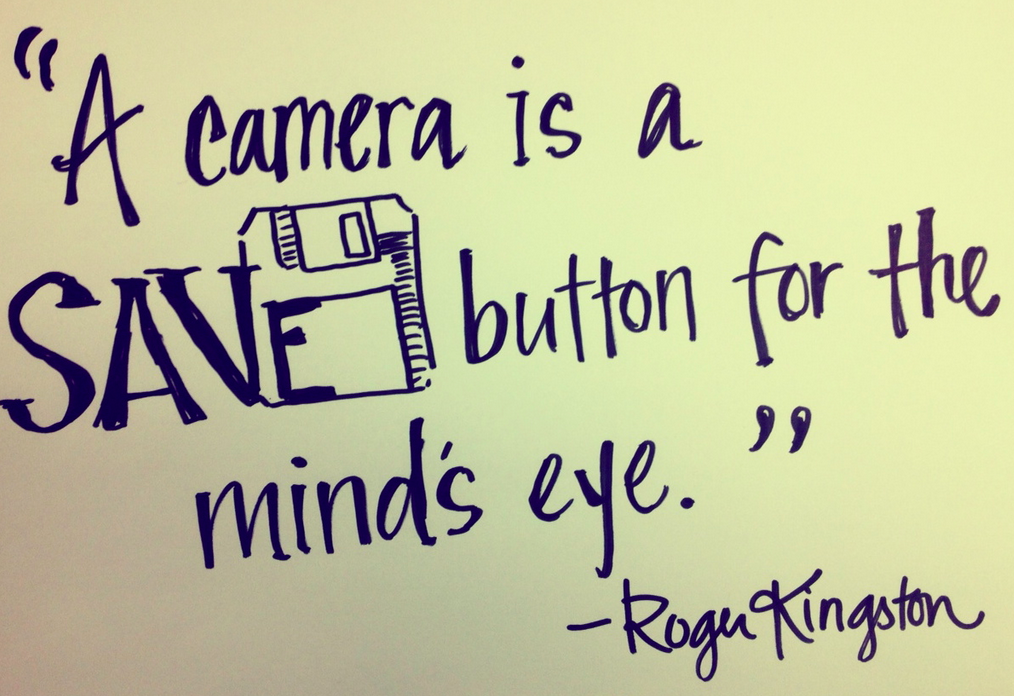 “A camera is a
SAVE button for the
mind's eye.”
- Roger Kingston